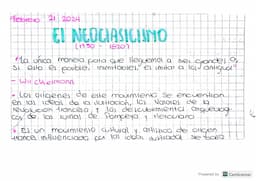 Febrero 21, 2024
El NEOCLASICISMO
(1750 - 1820)
"La única manera para que lleguemos a ser grandes o,
si esto es posible, inimitables, es imitar a los antiguos"
- Winckelmann
• Los orígenes de este movimiento se encuentran
en los ideales de la ilustración, los valores de la
Revolución francesa y los descubrimientos arqueológi-
cos de las ruinas de Pompeya y Herculano
• Es un movimiento cultural y artístico de origen
francés influenciado por las ideas ilustradas se basa
Powered by CamScanner